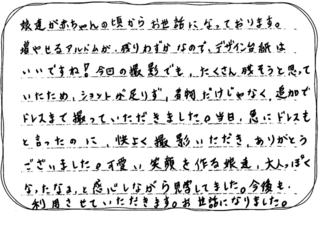 娘達が赤ちゃんの頃からお世話になっております。
増やせるアルバムが、残りわずかなので、デザイン台紙は
いいですね！今回の撮影でも、たくさん残そうと思って
いたため、ショットが足りず、着物だけじゃなく、追加で
ドレスまで撮っていただきました。当日、急にドレスも
と言ったのに、快よく撮影いただき、ありがとう
ございました。可愛い笑顔を作る娘達、大人っぽく
なったなぁ、と感心しながら見学してました。今後も、
利用させていただきます。お世話になりました。